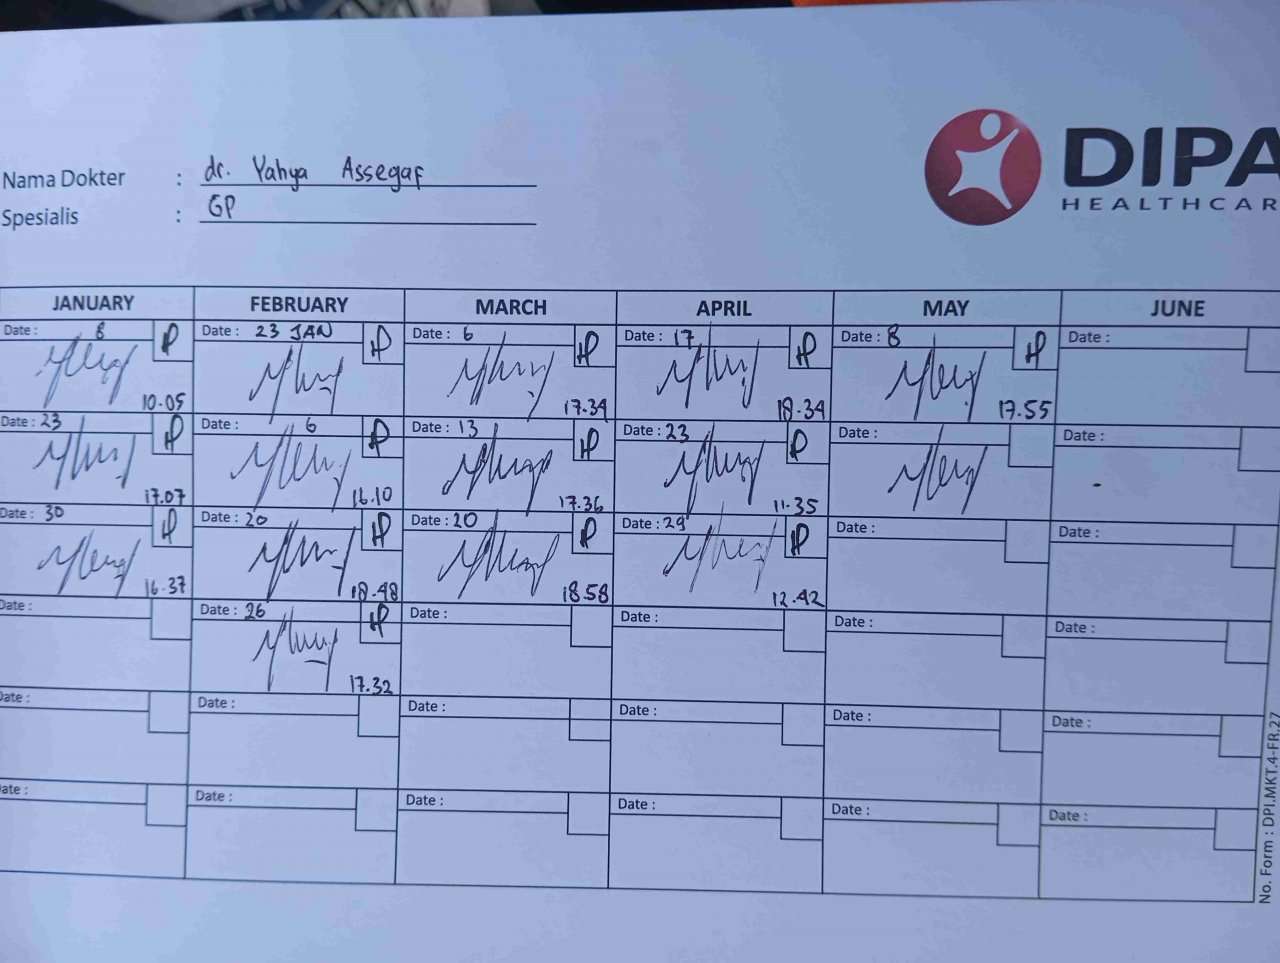 DIPA
HEALTHCAR
Nama Dokter : dr. Yahya Assegaf
Spesialis : GP
JANUARY FEBRUARY MARCH APRIL MAY JUNE
Date : 8 Date : 23 JAN Date : 6 Date : 17 Date : 8 Date :
10.05 17.34 18.34 17.55
Date : 23 Date : 6 Date : 13 Date : 23 Date : Date :
17.07 16.10 17.36 11.35
Date : 30 Date : 20 Date : 20 Date : 29 Date : Date :
16.37 18.48 18.58 12.42
Date : Date : 26 Date : Date : Date : Date :
17.32
Date : Date : Date : Date : Date : Date :
ate : Date : Date : Date : Date : Date :
No. Form : DPI.MKT.4-FR.27